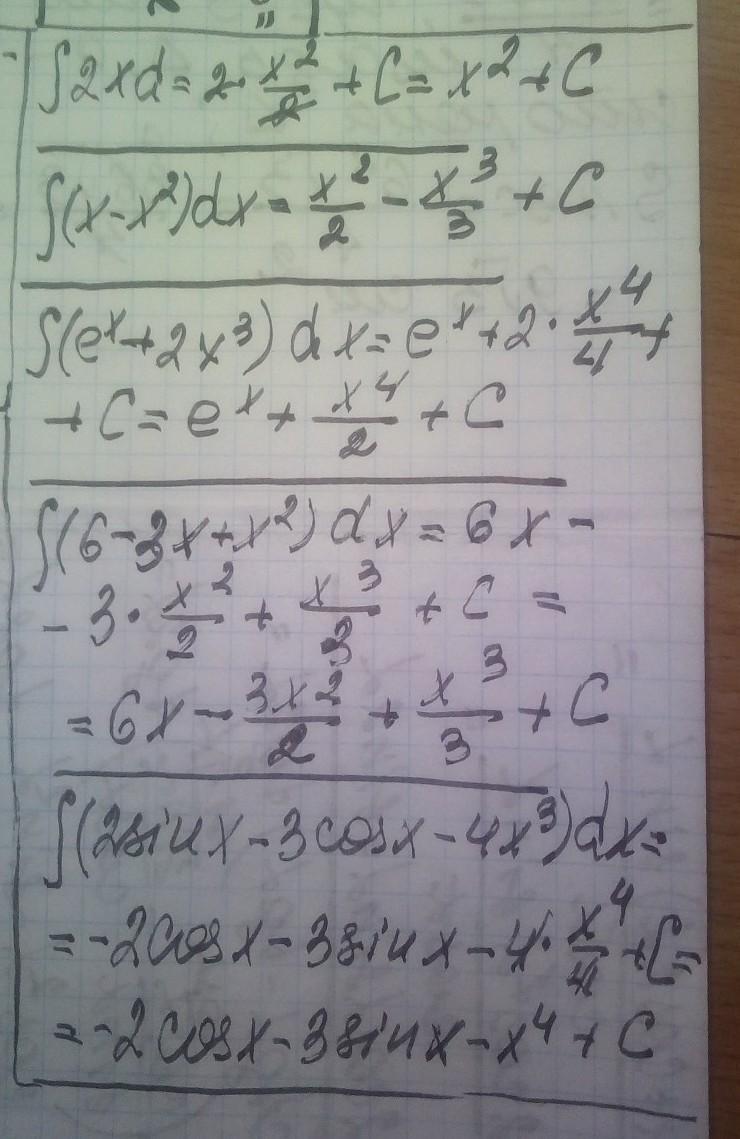 ∫2xd = 2·x²/2 + C = x² + C
∫(x-x²)dx = x²/2 - x³/3 + C
∫(eˣ+2x³) dx = eˣ+2·x⁴/4 +
+ C = eˣ + x⁴/2 + C
∫(6-3x+x²) dx = 6x -
- 3·x²/2 + x³/3 + C =
= 6x - 3x²/2 + x³/3 + C
∫(2sinx-3cosx-4x³)dx =
= -2cosx-3sinx-4·x⁴/4 + C =
= -2cosx-3sinx-x⁴ + C